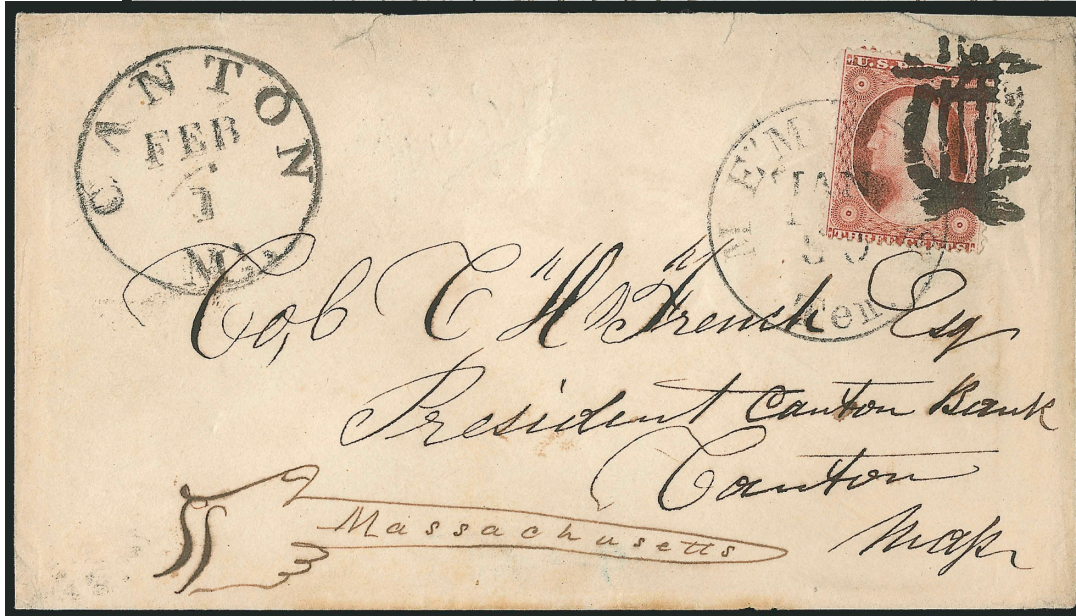 CANTON
FEB
1
Ms.
U.S. POST
THREE CENTS
MEM
JAN
Ten.
Col C "H" French Esq
President Canton Bank
Canton
Mass
Massachusetts